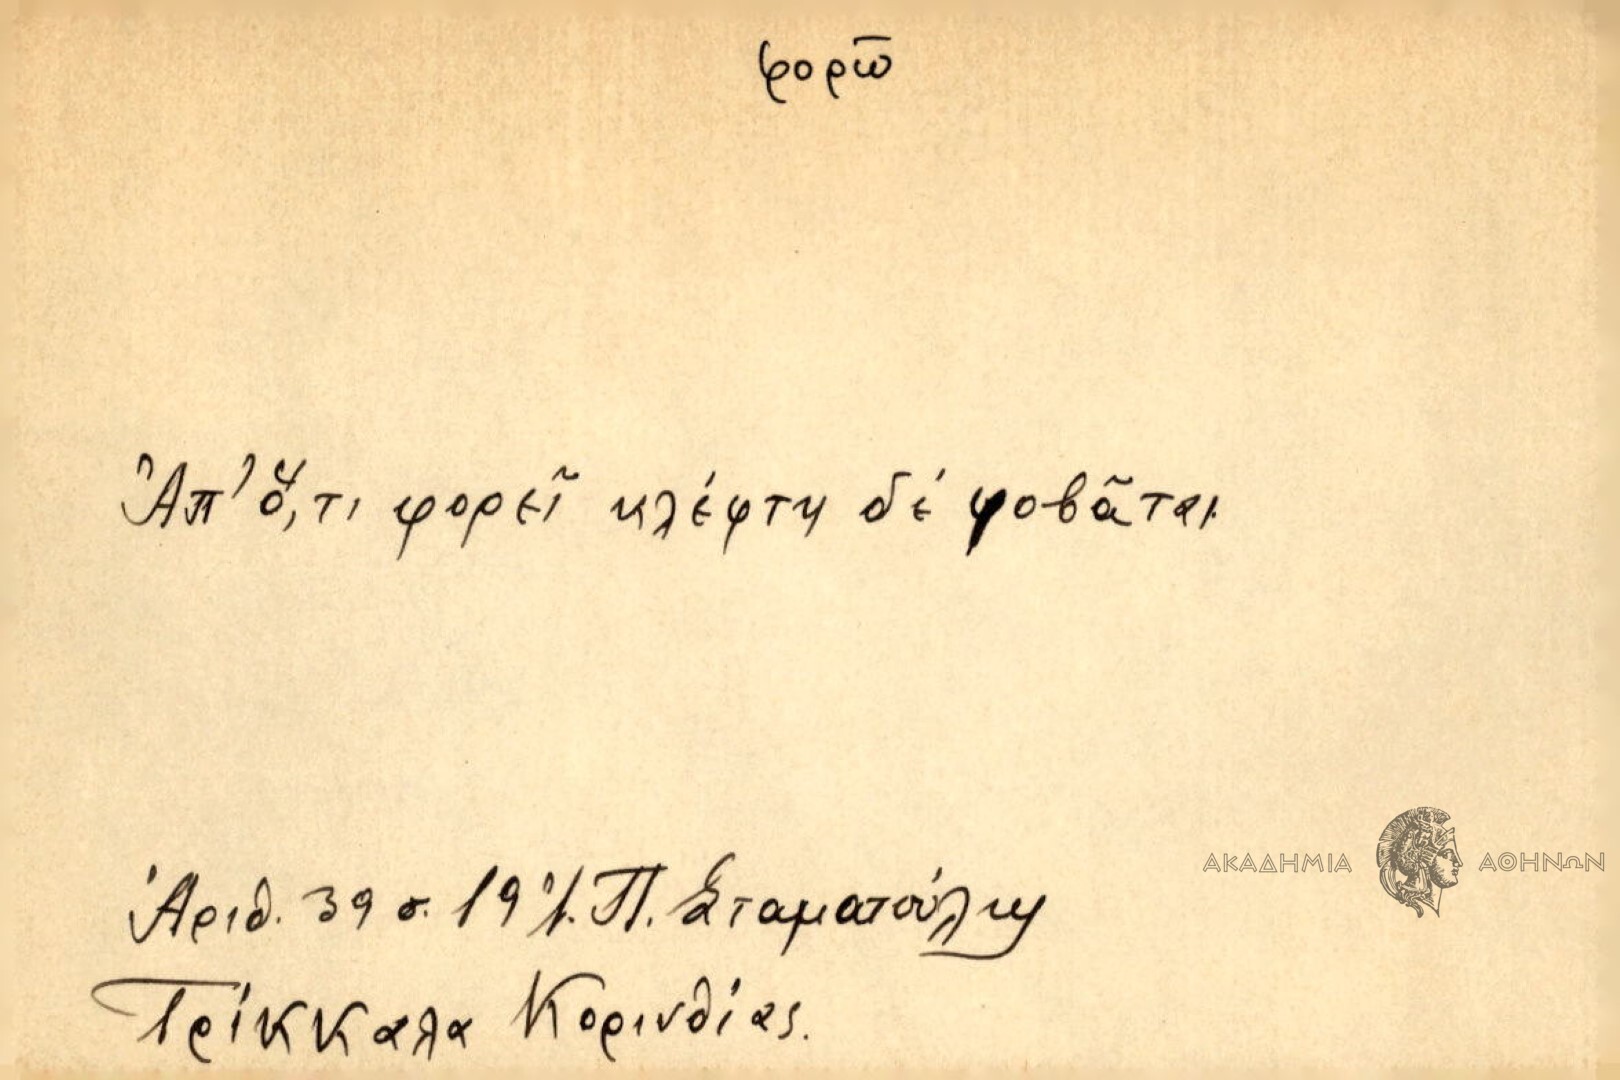 φορῶ
Ἀπ' ὅ,τι φορεῖ κλέφτη δέ φοβᾶται
ΑΚΑΔΗΜΙΑ ΑΘΗΝΩΝ
Ἀριθ. 39 σ. 19 Ἰ. Π. Σταματούλη
Τρίκκαλα Κορινθίας.